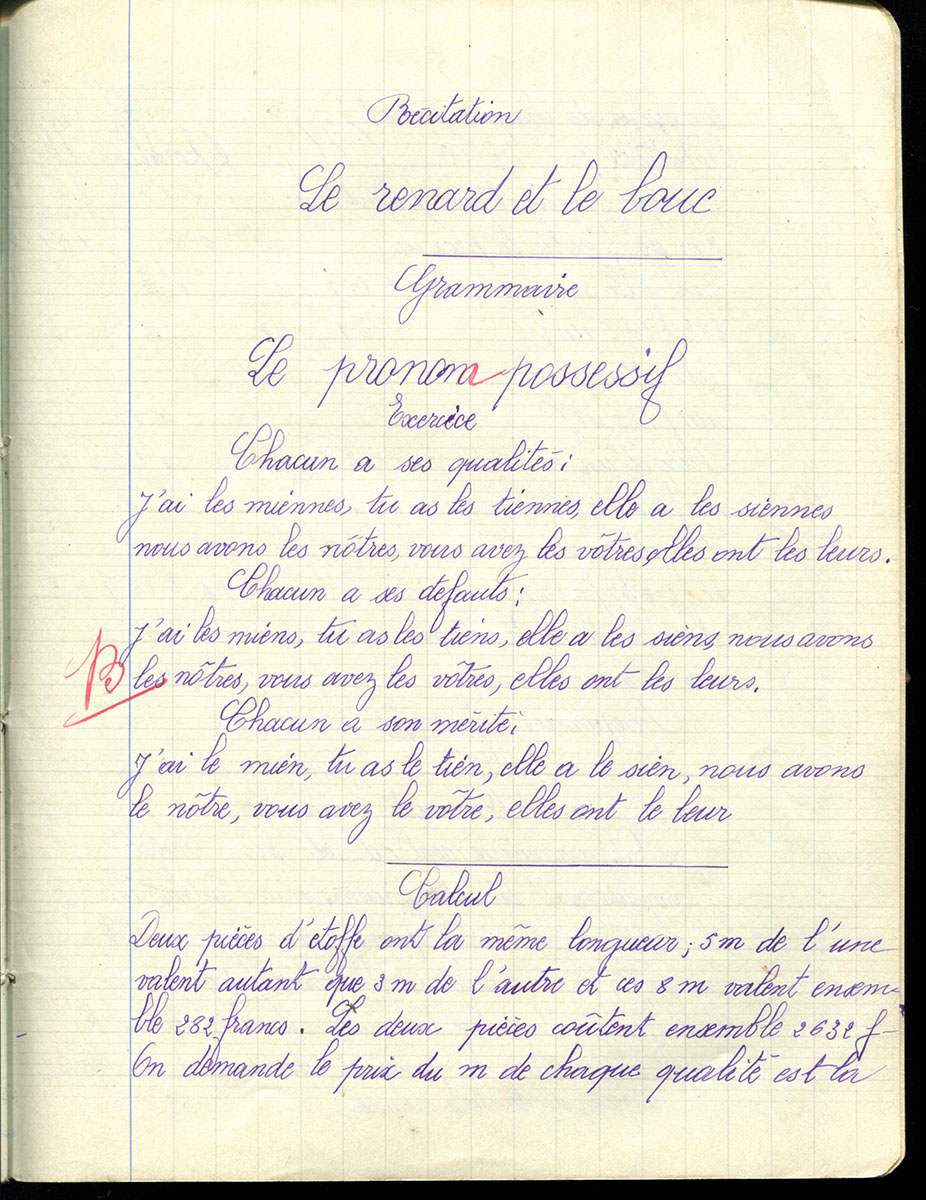 Récitation
Le renard et le bouc
Grammaire
Le pronom possessif
Exercice
Chacun a ses qualités :
J'ai les miennes, tu as les tiennes, elle a les siennes
nous avons les nôtres, vous avez les vôtres, elles ont les leurs.
Chacun a ses défauts :
J'ai les miens, tu as les tiens, elle a les siens, nous avons
les nôtres, vous avez les vôtres, elles ont les leurs.
B
Chacun a son mérite :
J'ai le mien, tu as le tien, elle a le sien, nous avons
le nôtre, vous avez le vôtre, elles ont le leur
Calcul
Deux pièces d'étoffe ont la même longueur ; 5m de l'une
valent autant que 3 m de l'autre et ces 8 m valent ensem-
ble 282 francs. Les deux pièces coûtent ensemble 2632 f-
On demande le prix du m de chaque qualité est la